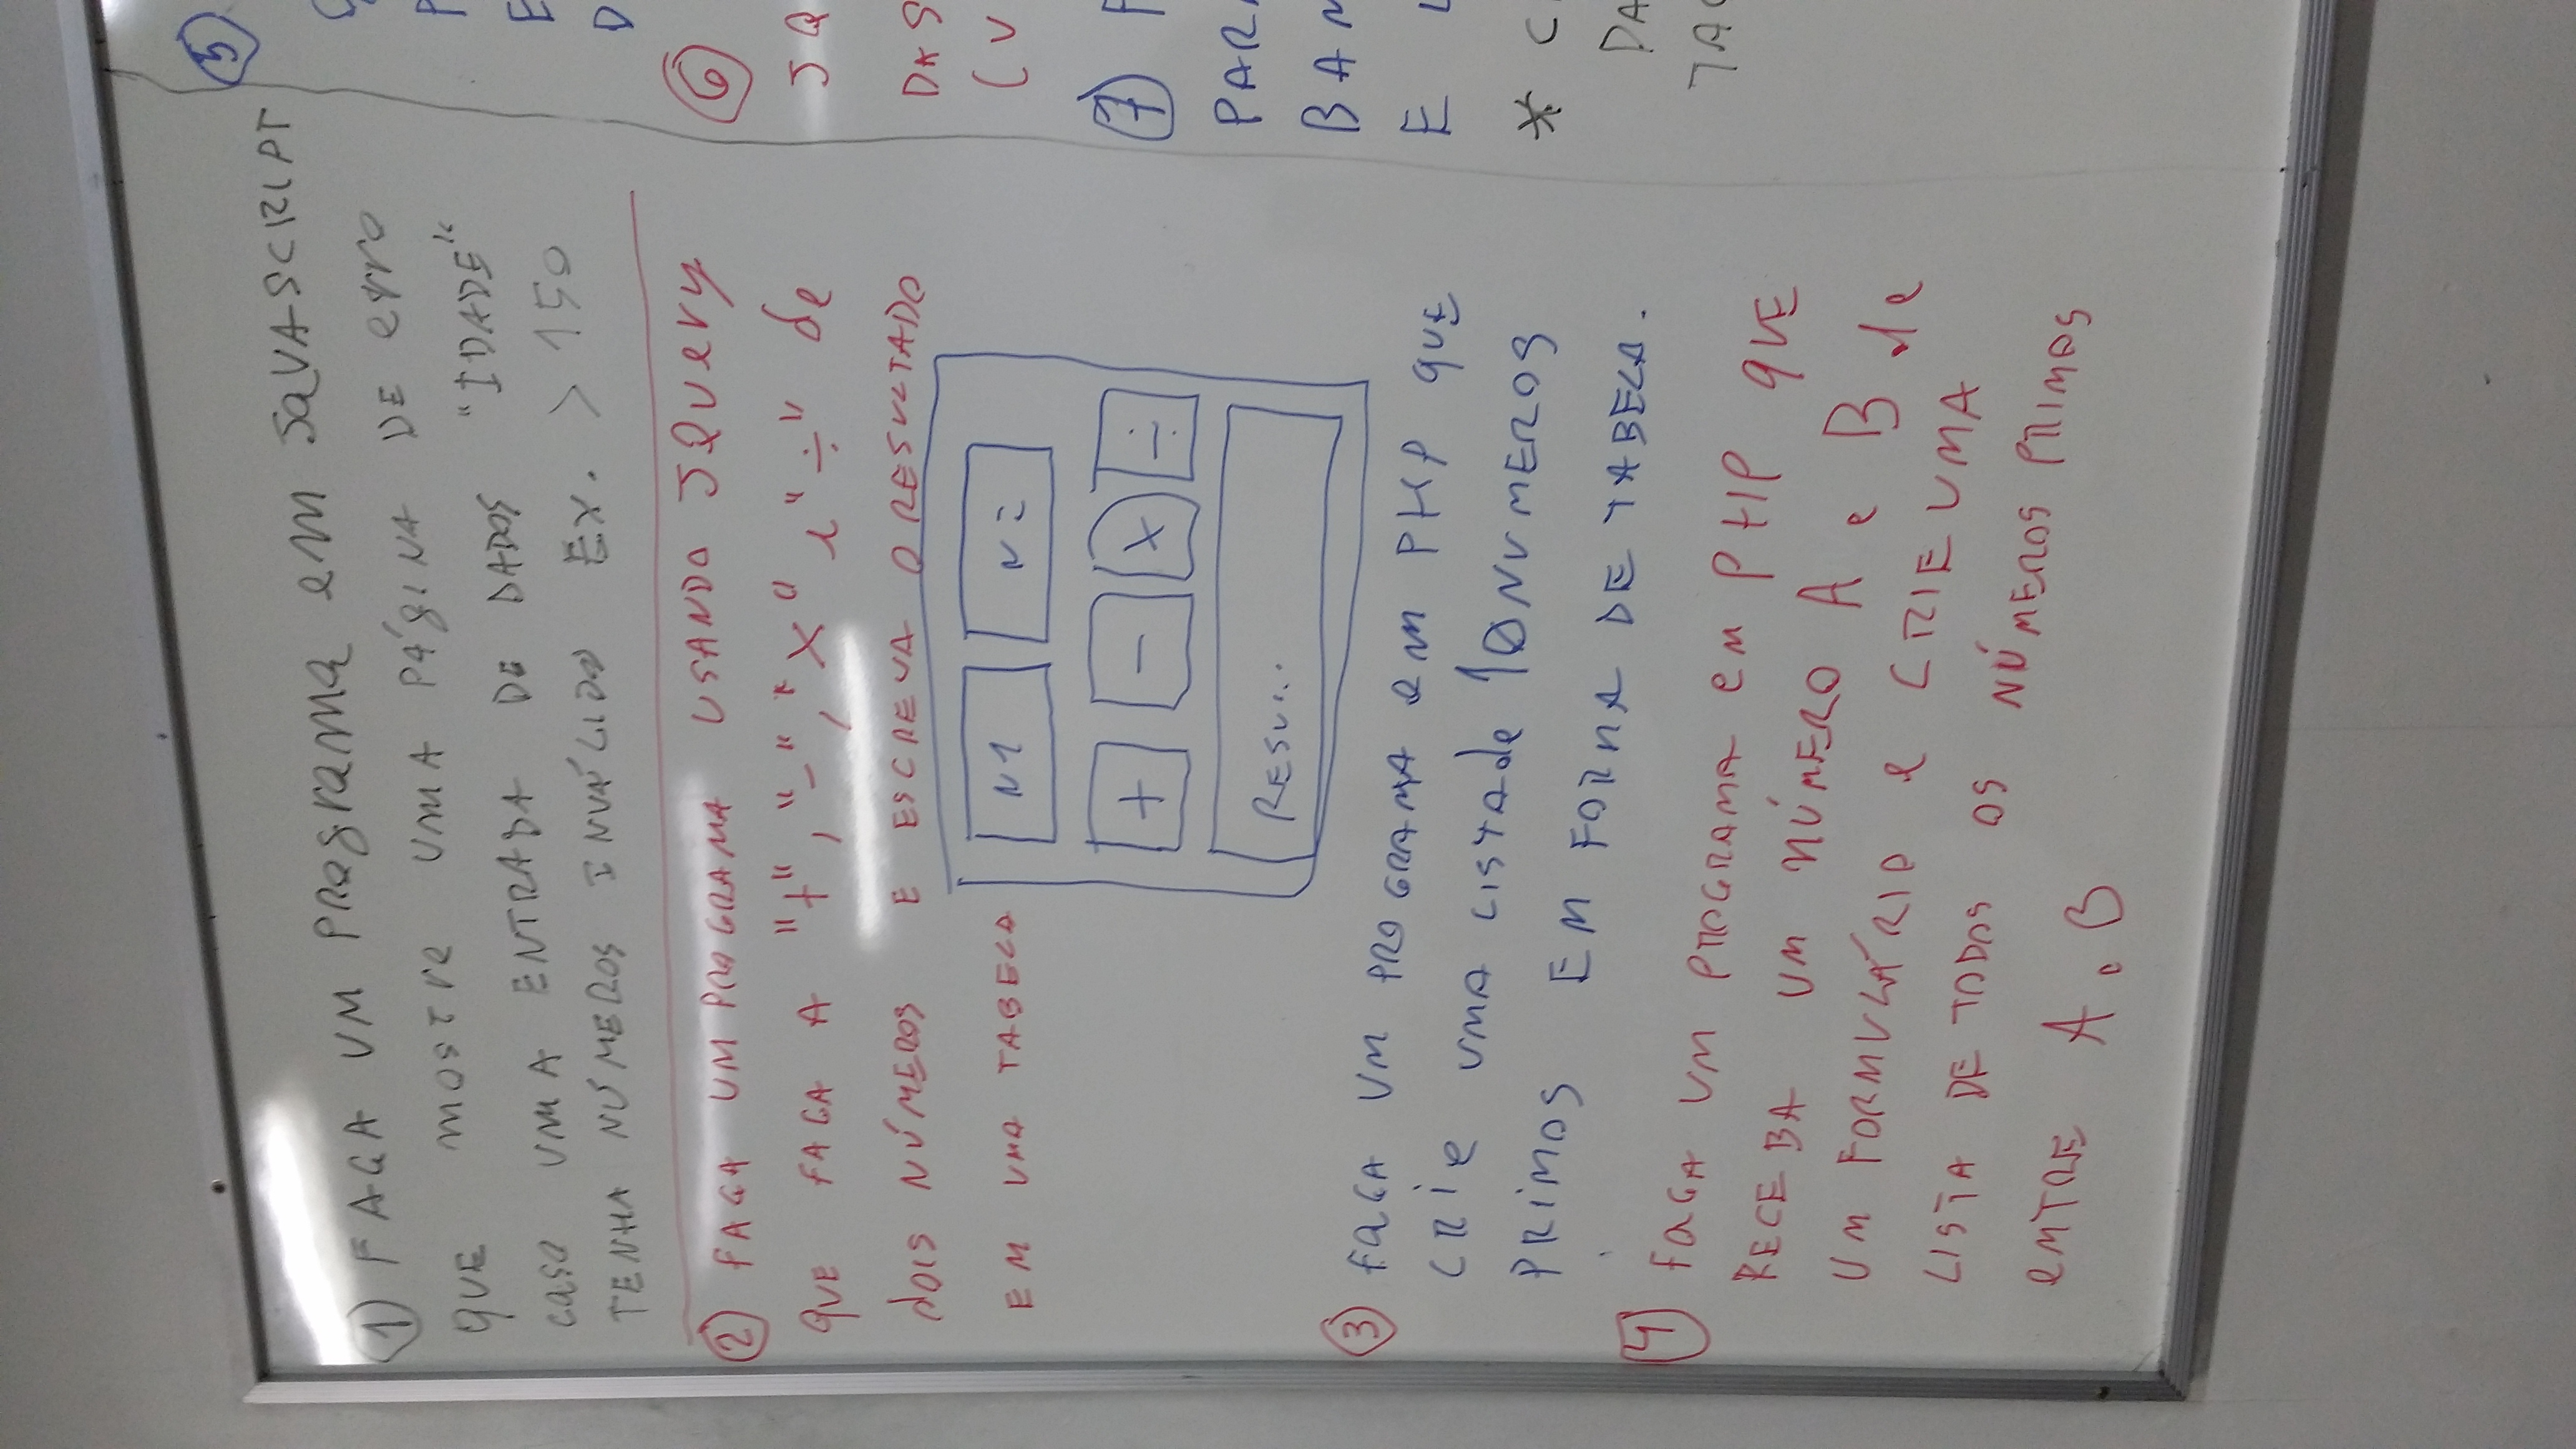 1) FAÇA UM PROgramA em JaVASCRIPT
QUE mostre UMA PÁgINA DE erro
caso UMA ENTRADA DE DADOS "IDADE"
TENHA NÚMEROS INVÁLIDO EX. > 150
2 FAÇA UM PROGRAMA USANDO JQuery
QUE FAÇA A "+", "-", "X" e "÷" de
dois NÚMEROS E ESCREVA O RESULTADO
EM UMA TABELA
N1 N2
+ - X ÷
RESU...
3 FAÇA UM PROGRAMA em PHP QUE
CRIe UMA LISTA de 10 NUMEROS
PRIMOS EM FORMA DE TABELA.
4 FAÇA UM PROGRAMA em PHP QUE
RECEBA UM NÚMERO A e B de
UM FORMULÁRIO e CRIE UMA
LISTA DE TODOS OS NÚMEROS PRIMOS
eNTRE A e B
5
P
E
D
6
JQ
DAS
(V
7 F
PARA
BAN
E
* C
DA
TAG